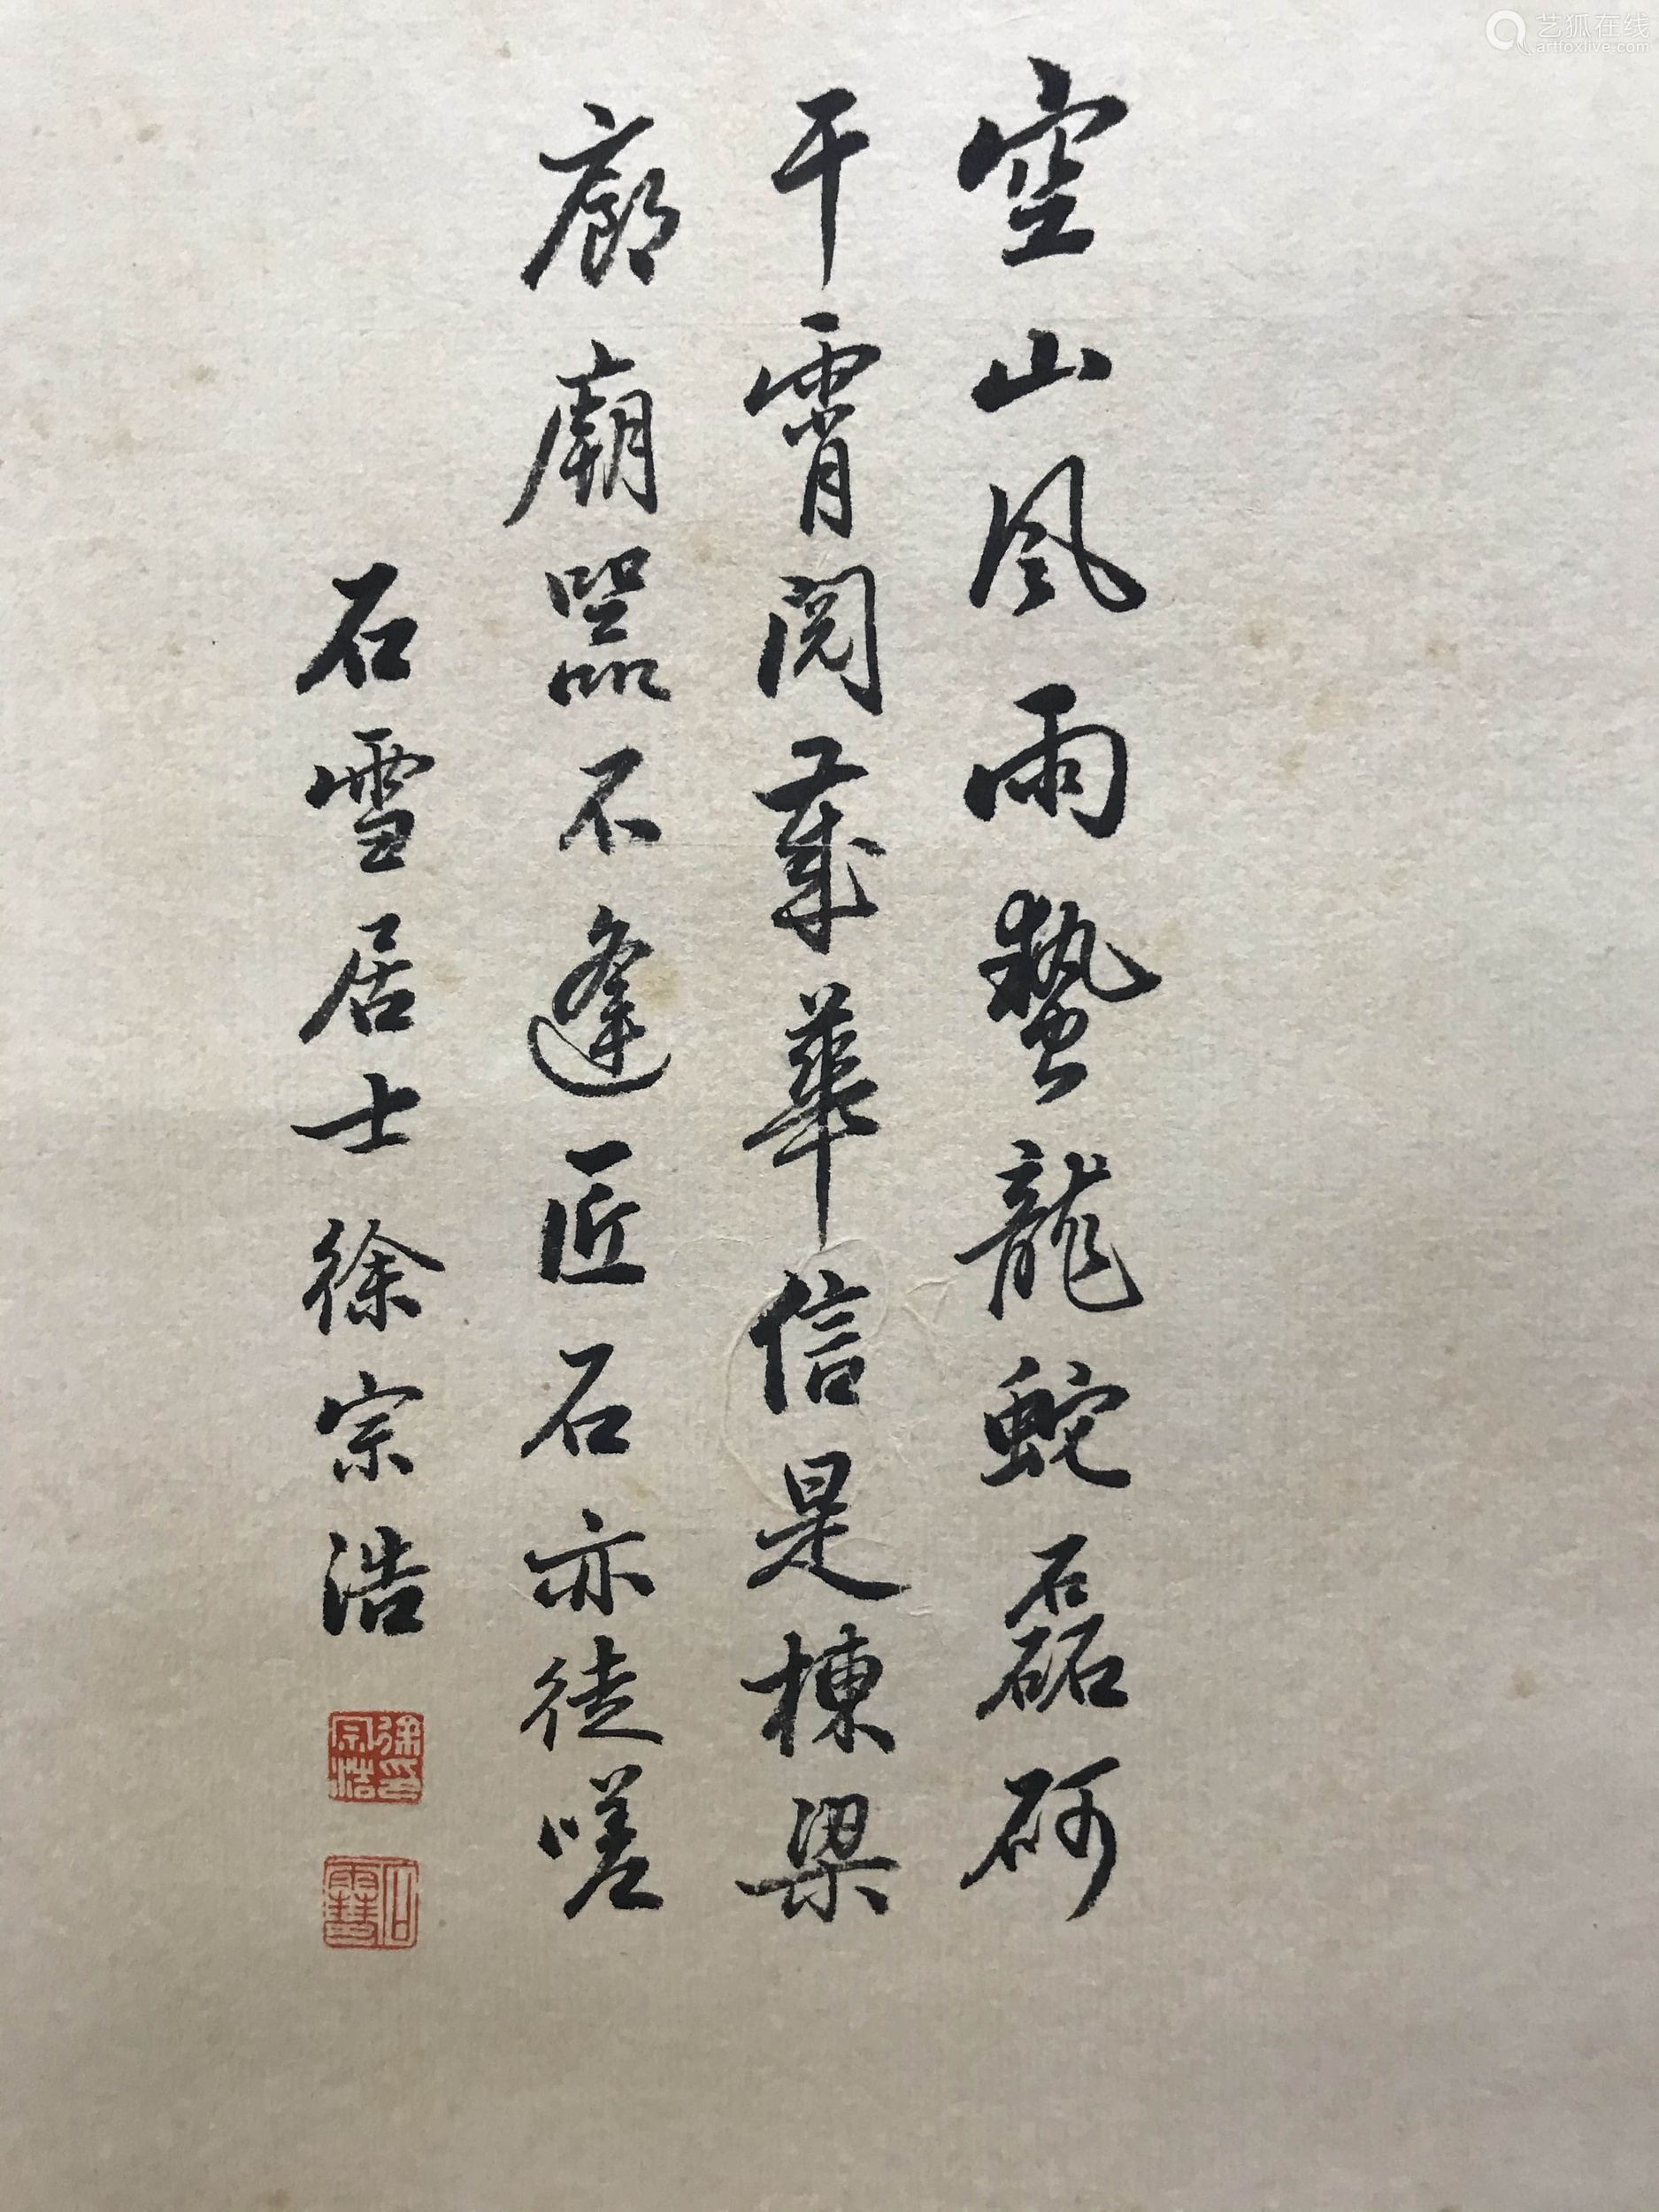 空山風雨蟄龍蛇磊砢
干霄閱歲華信是棟梁
廊廟器不逢匠石亦徒嗟
石雪居士徐宗浩
徐宗浩印
石雪
艺狐在线
artfoxlive.com